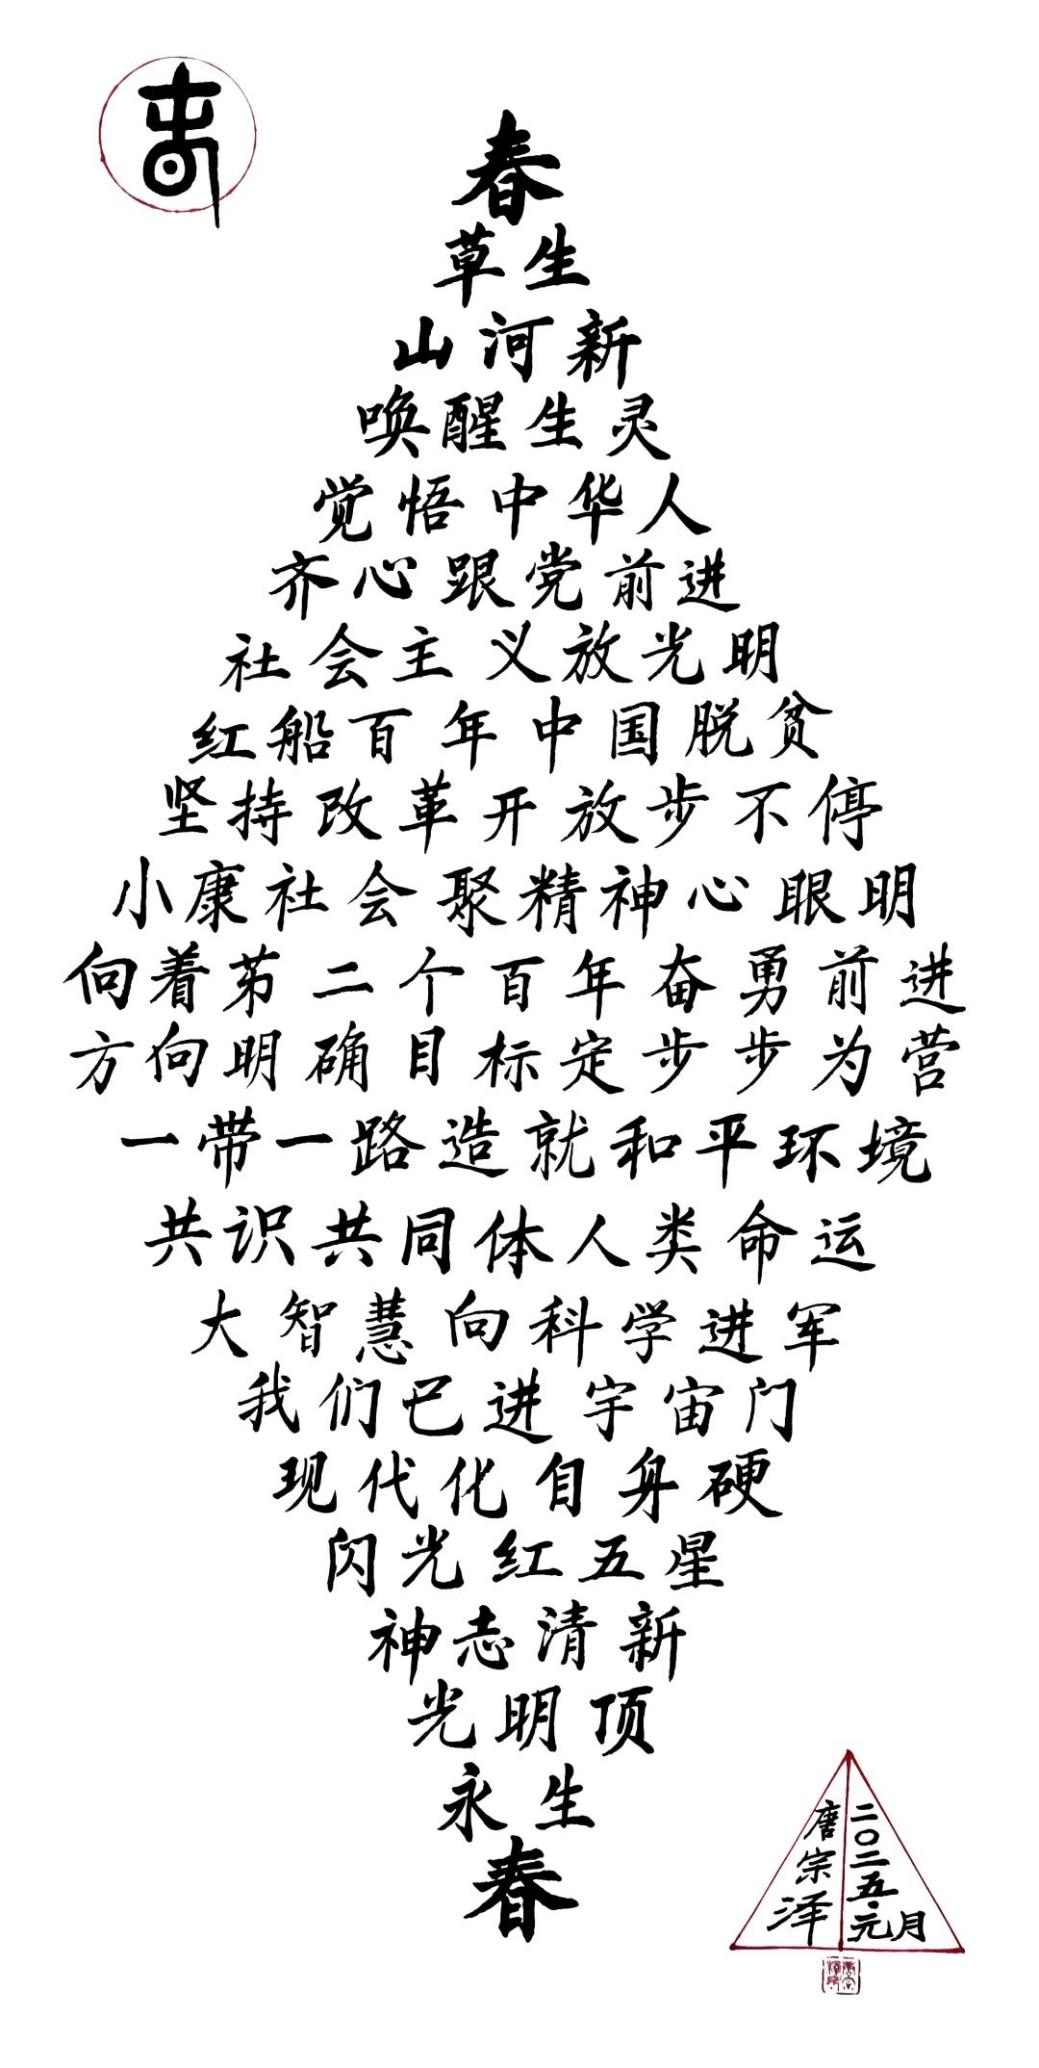 春
草生
山河新
唤醒生灵
觉悟中华人
齐心跟党前进
社会主义放光明
红船百年中国脱贫
坚持改革开放步不停
小康社会聚精神心眼明
向着苐二个百年奋勇前进
方向明确目标定步步为营
一带一路造就和平环境
共识共同体人类命运
大智慧向科学进军
我们已进宇宙门
现代化自身硬
闪光红五星
神志清新
光明顶
永生
春
二〇二五.元月
唐宗泽